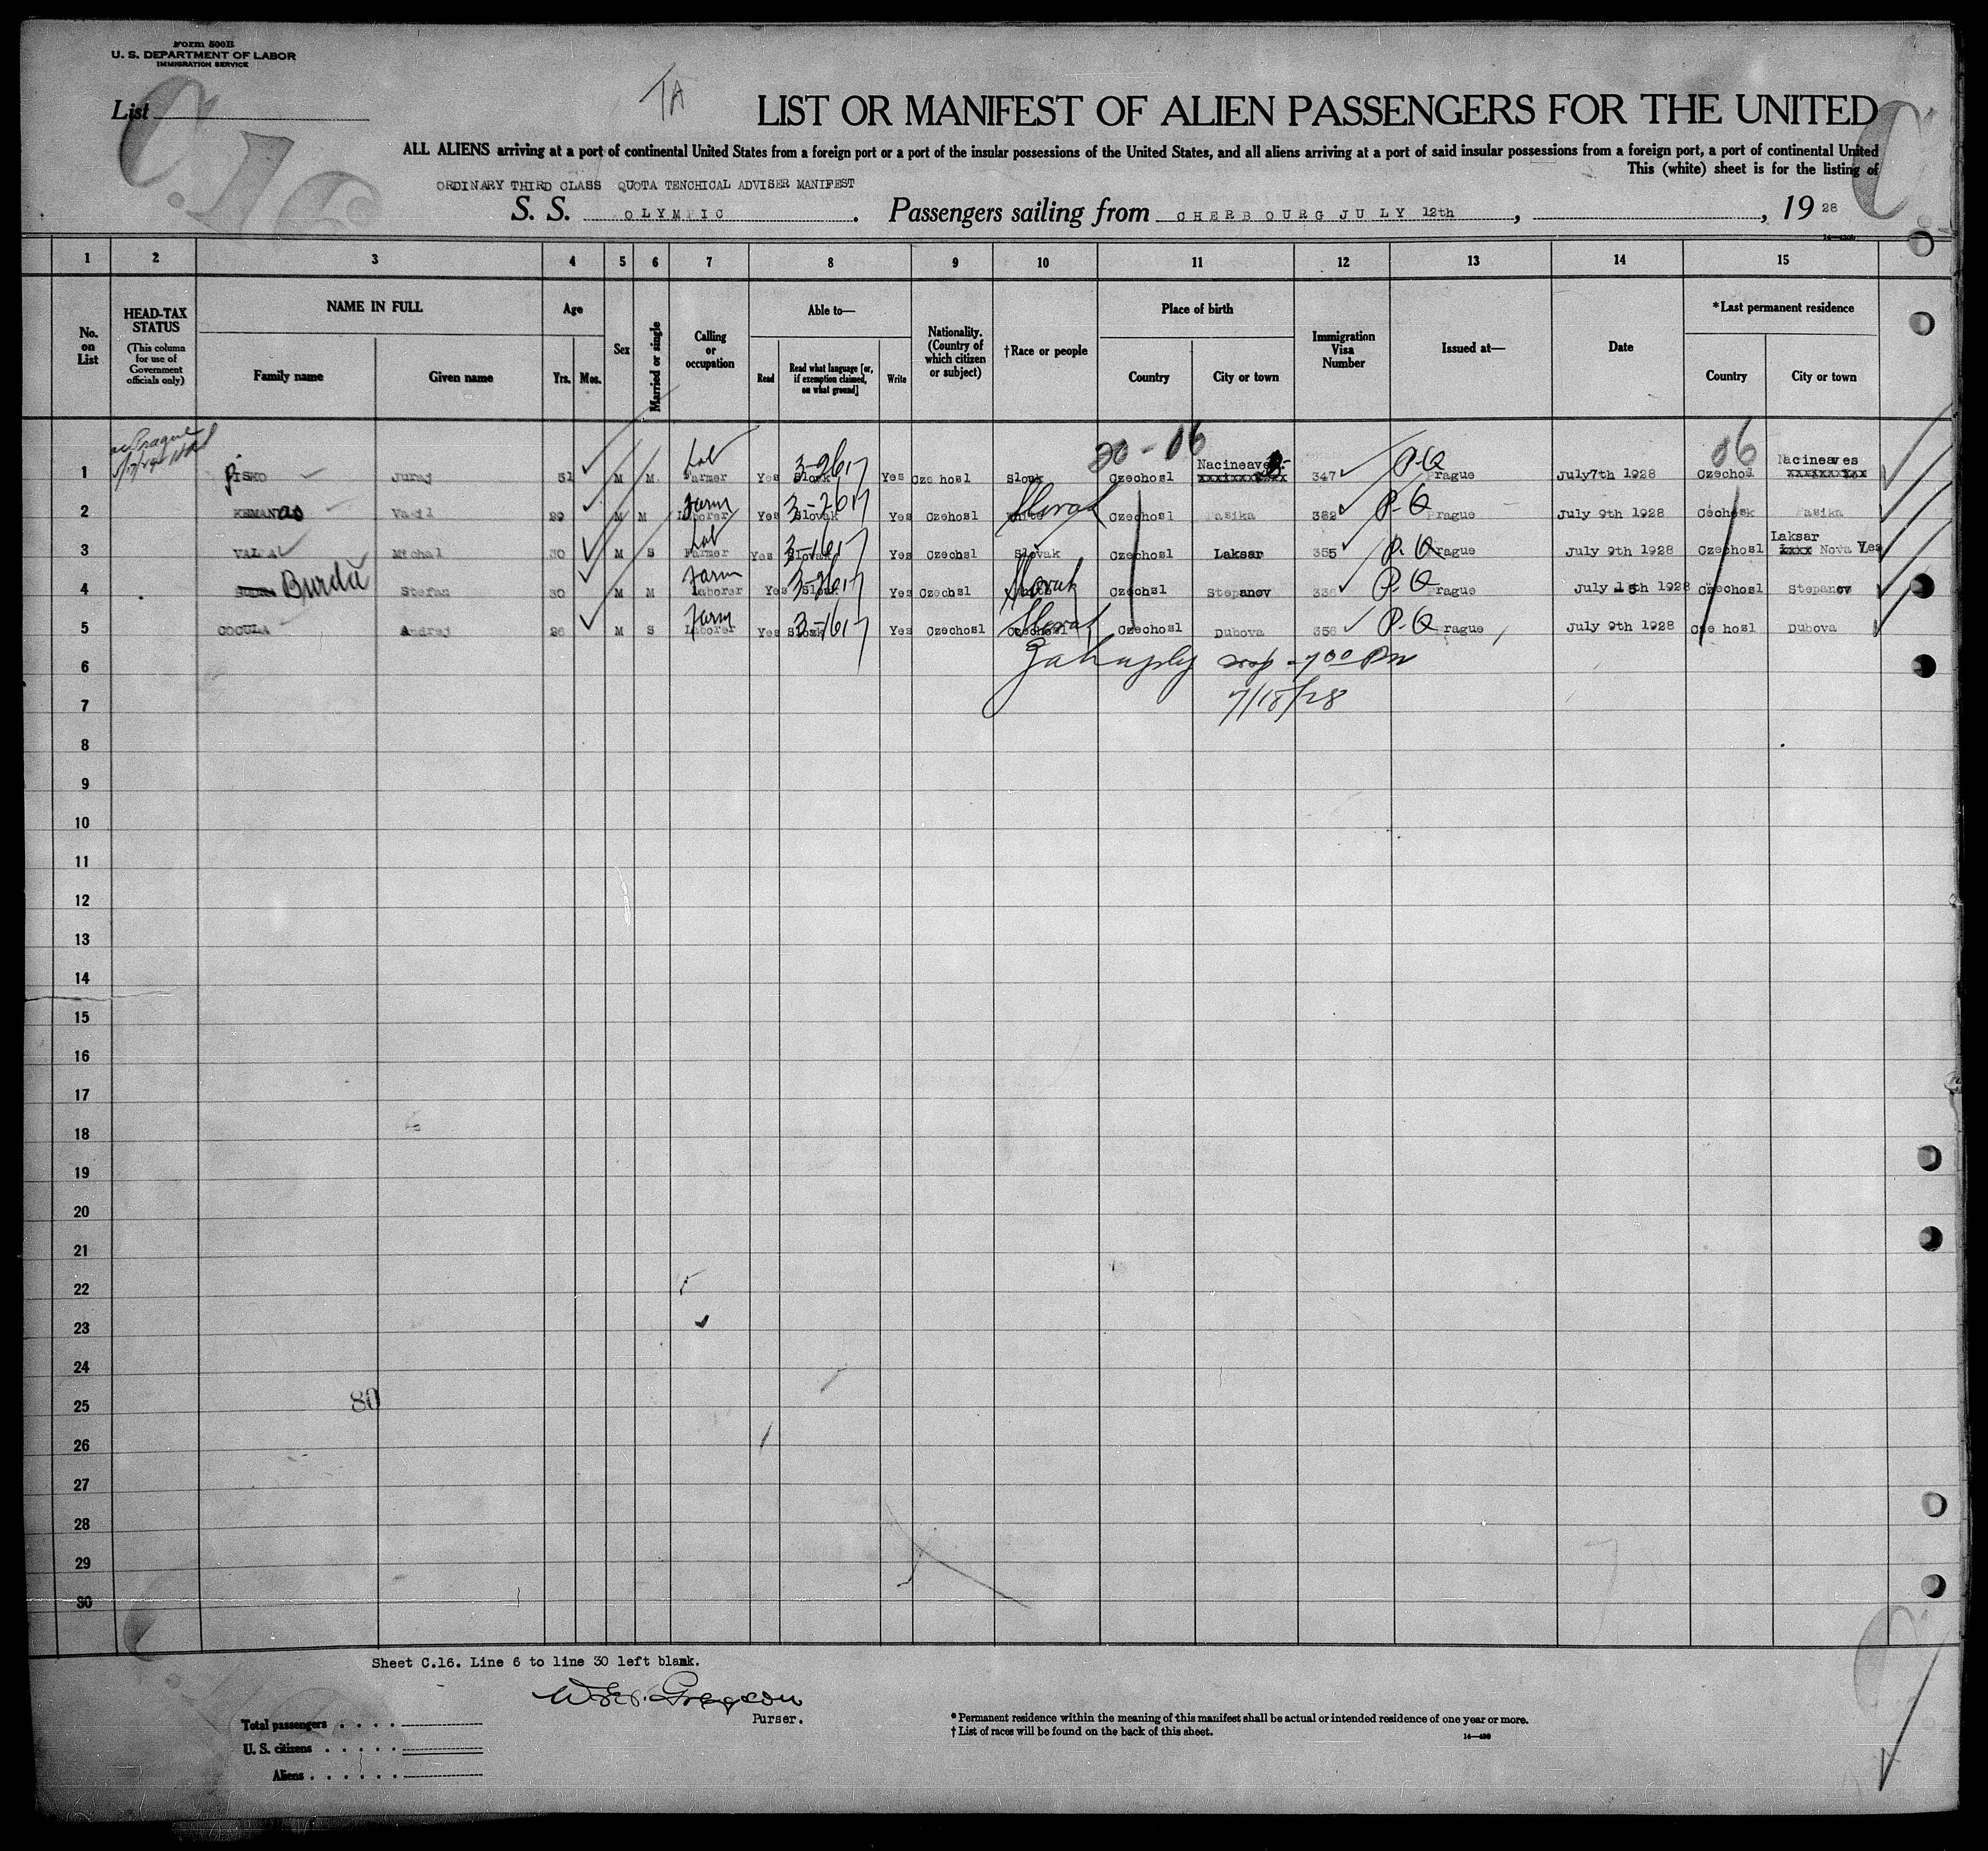 Form 500B
U. S. DEPARTMENT OF LABOR
IMMIGRATION SERVICE
List
C.16
TA
C
LIST OR MANIFEST OF ALIEN PASSENGERS FOR THE UNITED
ALL ALIENS arriving at a port of continental United States from a foreign port or a port of the insular possessions of the United States, and all aliens arriving at a port of said insular possessions from a foreign port, a port of continental United
This (white) sheet is for the listing of
ORDINARY THIRD CLASS QUOTA TENCHICAL ADVISER MANIFEST
S. S. OLYMPIC. Passengers sailing from CHERBOURG JULY 12th, , 19 28
1 2 3 4 5 6 7 8 9 10 11 12 13 14 15
No. on List
HEAD-TAX STATUS (This column for use of Government officials only)
NAME IN FULL
Family name Given name
Age
Yrs. Mos.
Sex
Married or single
Calling or occupation
Able to—
Read Read what language [or, if exemption claimed, on what ground] Write
Nationality. (Country of which citizen or subject)
†Race or people
Place of birth
Country City or town
Immigration Visa Number
Issued at—
Date
*Last permanent residence
Country City or town
20-06 06
1 PISKO Juraj 31 M M Lab Farmer Yes 3-2617 Slovak Yes Cze hosl Slovk Czechosl Nacineaves 347 P.Q Prague July7th 1928 Czechosl Nacineaves
2 Vasil 29 M M Farm Laborer Yes 3-2617 Slovak Yes Czehosl Slovak Czechosl Pasika 382 P.Q Prague July 9th 1928 Cechosk Pasika
3 Michal 30 M S Lab Farmer Yes 3-1617 Slovak Yes Czechsl Slovak Czechosl Laksar 355 P.Q Prague July 9th 1928 Czechosl Laksar Nova Ves
4 Burda Stefan 30 M M Farm Laborer Yes 3-2617 Slovk Yes Czechsl Slovak Czechsl Stepanov 338 P.Q Prague July 1 th 1928 Czechosl Stepanov
5 COCULA Andrej 26 M S Farm Laborer Yes 3-1617 Slovk Yes Czechosl Slovak Czechosl Dubova 356 P.Q Prague July 9th 1928 Cze hosl Dubova
6 700 PM
7 7/18/28
8
9
10
11
12
13
14
15
16
17
18
19
20
21
22
23
24
25 80
26
27
28
29
30
Sheet C.16. Line 6 to line 30 left blank.
Purser.
Total passengers
U. S. citizens
Aliens
* Permanent residence within the meaning of this manifest shall be actual or intended residence of one year or more.
† List of races will be found on the back of this sheet.